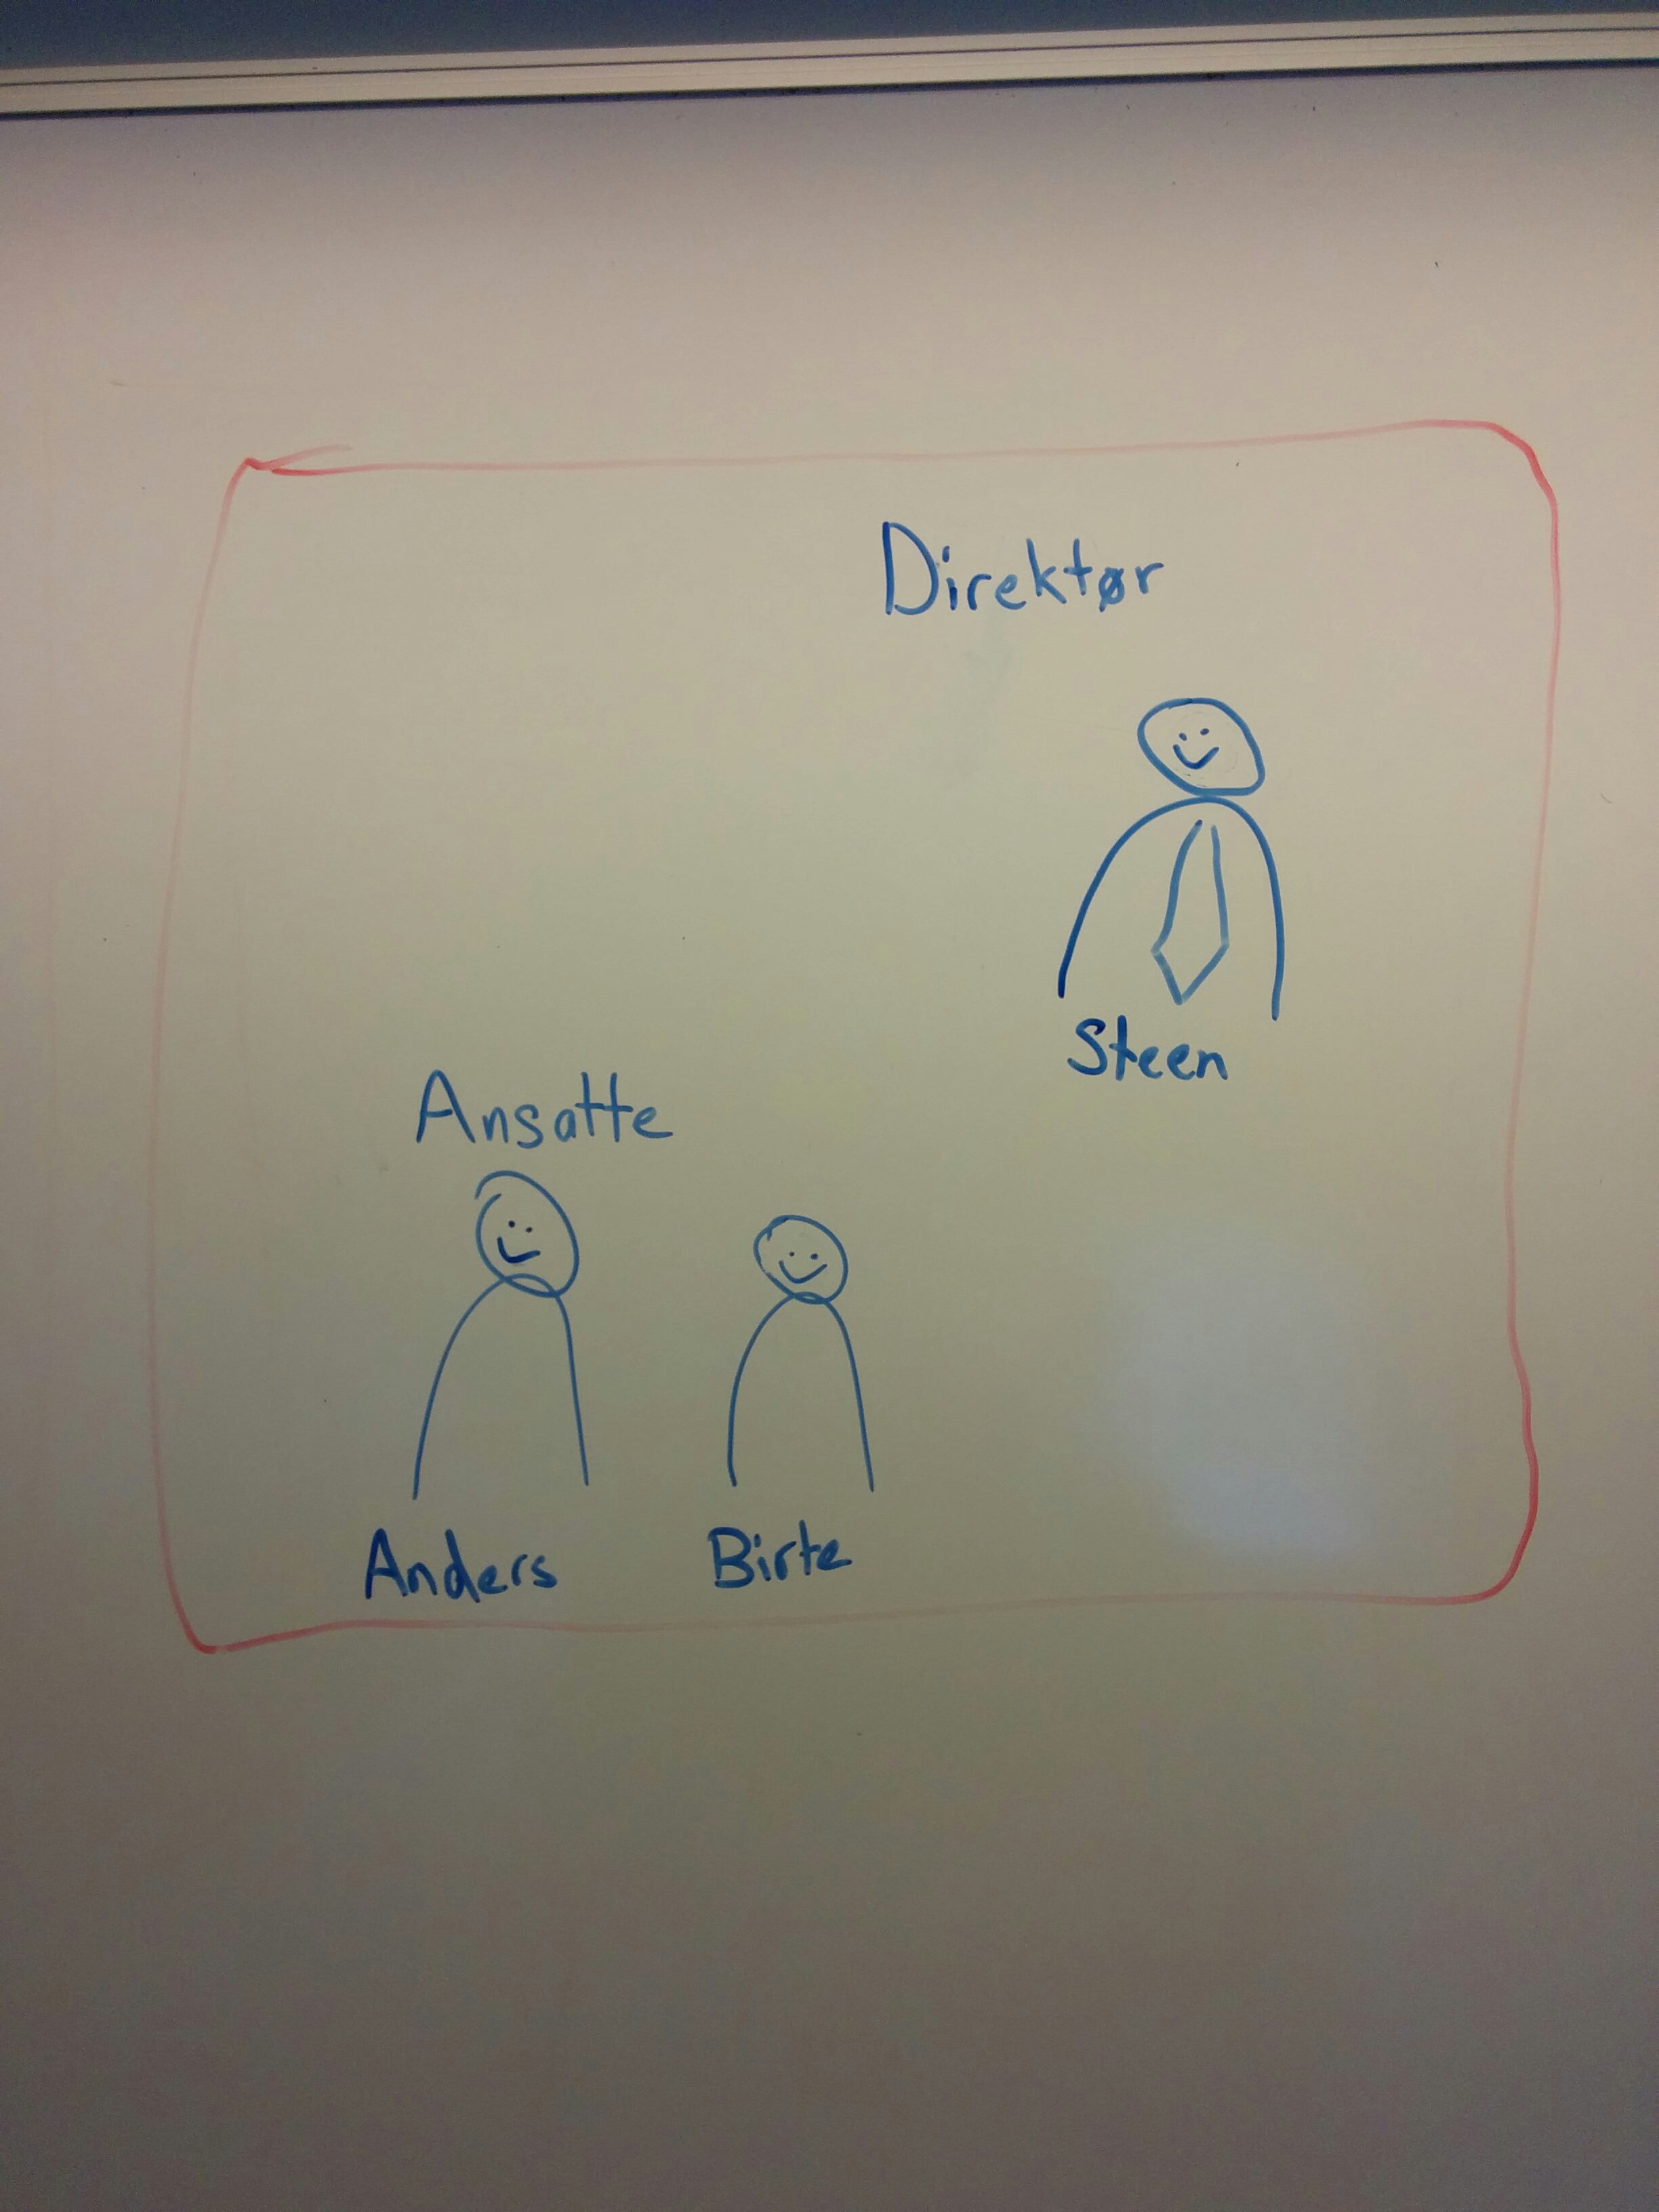 Direktør
Steen
Ansatte
Anders
Birte